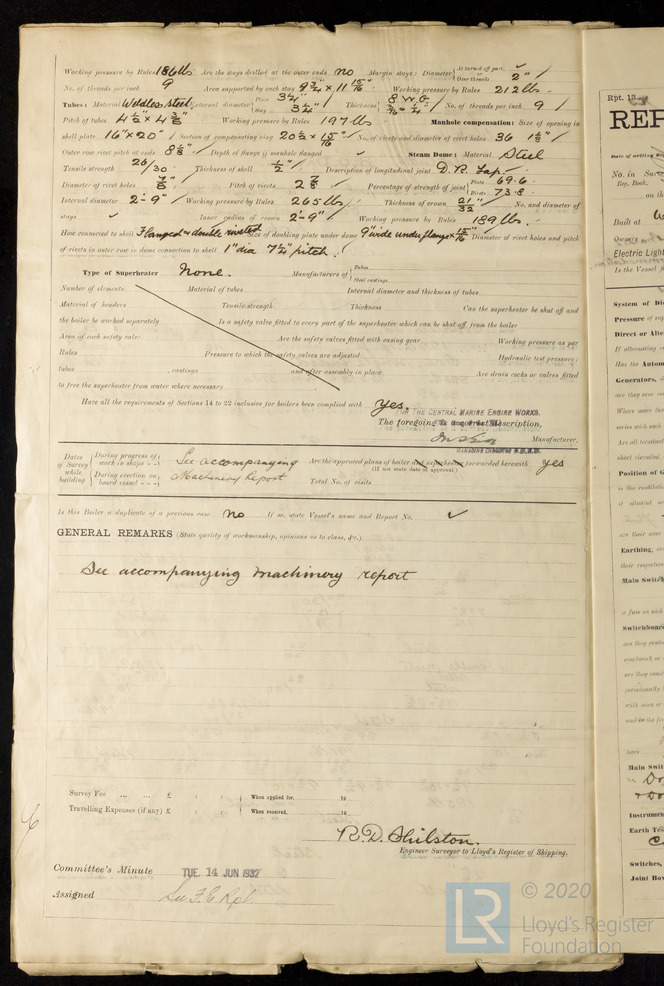 Working pressure by Rules 186 lbs Are the stays drilled at the outer ends no Margin stays: Diameter At turned off part, or Over threads 2"
No. of threads per inch 9 Area supported by each stay 9 3/4" x 11 15/16 Working pressure by Rules 212 lbs
Tubes: Material Weldless steel External diameter Plain 3 1/4" Stay 3 1/4" Thickness 8 W.G. 5/16" 1/4" No. of threads per inch 9
Pitch of tubes 4 1/2" x 4 3/8" Working pressure by Rules 197 lbs Manhole compensation: Size of opening in
shell plate 16" x 20" Section of compensating ring 20 1/2 x 15/16 No. of rivets and diameter of rivet holes 36 1 1/8"
Outer row rivet pitch at ends 8 1/8" Depth of flange if manhole flanged Steam Dome: Material Steel
Tensile strength 26/30 Thickness of shell 1/2" Description of longitudinal joint D. R. Lap.
Diameter of rivet holes 7/8" Pitch of rivets 2 7/8 Percentage of strength of joint Plate 69.6 Rivets 73.8
Internal diameter 2'-9" Working pressure by Rules 265 lbs Thickness of crown 21/32" No. and diameter of
stays Inner radius of crown 2'-9" Working pressure by Rules 189 lbs.
How connected to shell Flanged & double riveted Size of doubling plate under dome 9" wide under flange x 15/16 Diameter of rivet holes and pitch
of rivets in outer row in dome connection to shell 1" dia 7 1/2" pitch.
Type of Superheater None. Manufacturers of Tubes Steel castings
Number of elements Material of tubes Internal diameter and thickness of tubes
Material of headers Tensile strength Thickness Can the superheater be shut off and
the boiler be worked separately Is a safety valve fitted to every part of the superheater which can be shut off from the boiler
Area of each safety valve Are the safety valves fitted with easing gear Working pressure as per
Rules Pressure to which the safety valves are adjusted Hydraulic test pressure:
tubes , castings and after assembly in place Are drain cocks or valves fitted
to free the superheater from water where necessary
Have all the requirements of Sections 14 to 22 inclusive for boilers been complied with Yes.
FOR THE CENTRAL MARINE ENGINE WORKS.
The foregoing is a correct description,
Manufacturer.
Dates of Survey while building During progress of work in shops - - See accompanying Are the approved plans of boiler and superheater forwarded herewith yes
(If not state date of approval.)
During erection on board vessel - - - Machinery Report Total No. of visits
Is this Boiler a duplicate of a previous case No If so, state Vessel's name and Report No.
GENERAL REMARKS (State quality of workmanship, opinions as to class, &c.)
See accompanying machinery report
Survey Fee ... ... £ : : When applied for, 19
Travelling Expenses (if any) £ : : When received, 19
R.D. Shilston.
Engineer Surveyor to Lloyd's Register of Shipping.
Committee's Minute TUE. 14 JUN 1932
Assigned See F.E. Rpt.
Rpt. 13.
REP
Date of writing
No. in
Reg. Book.
on the
Built at
Owners
Electric Light
Is the Vessel
System of Di
Pressure of
Direct or Alte
If alternating
Has the Autom
Generators,
are they
Where more
series with each
Are all
short circuited,
Position of G
is the
if situated
are their
Earthing,
their respective
Main Switch
a fuse on each
Switchboard
are they
woodwork or
are they
personally
with
and
have
Main Swit
Instrumen
Earth Te
Switches,
Joint Box
LR
© 2020
Lloyd's Register
Foundation